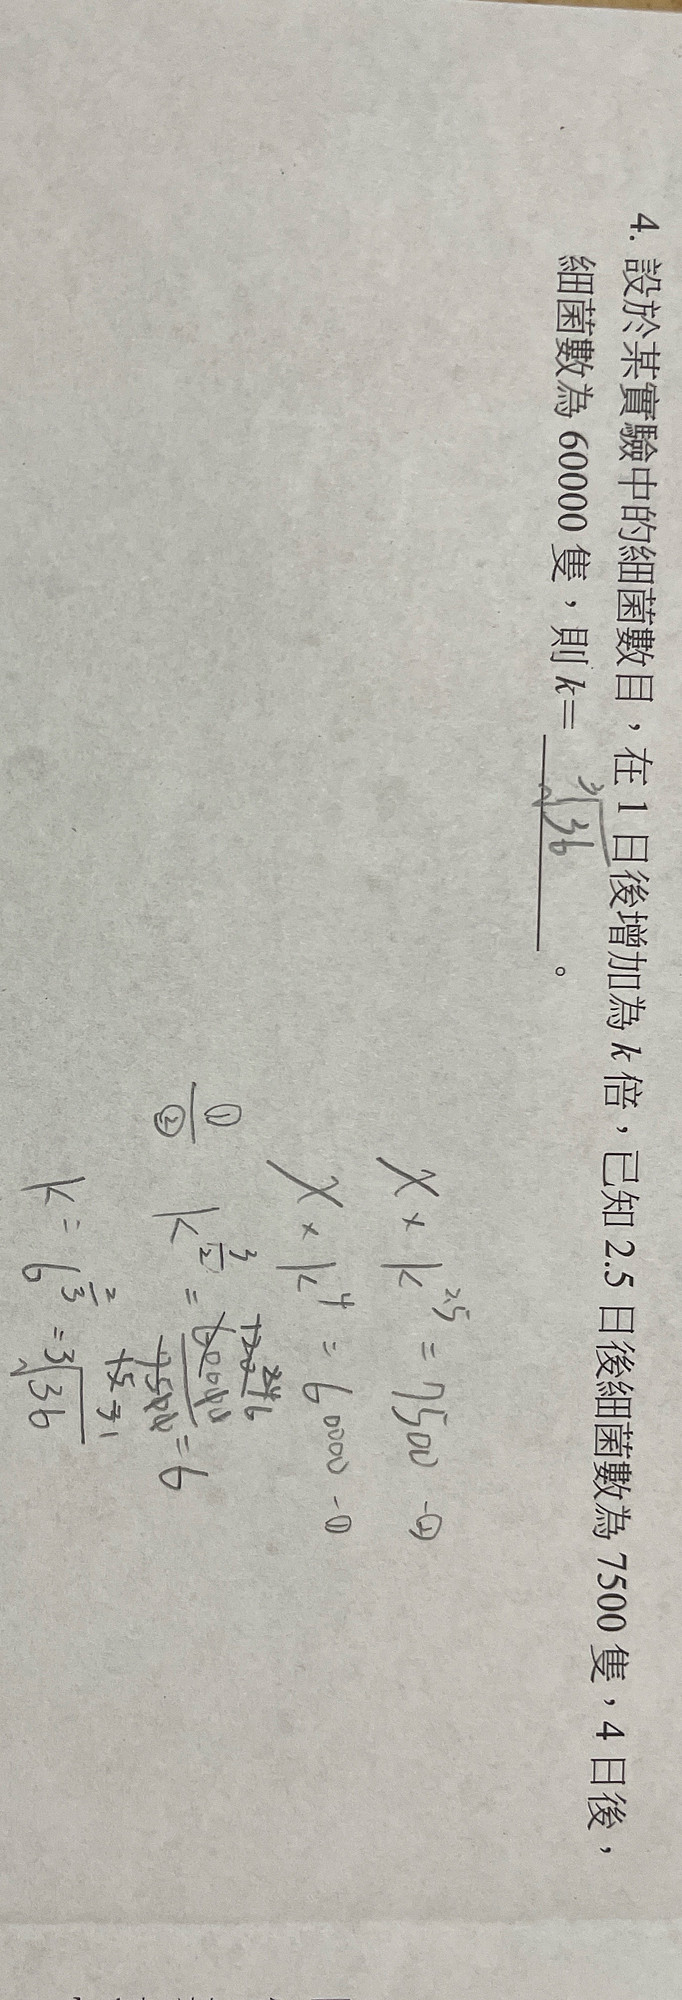 4. 設於某實驗中的細菌數目，在 1 日後增加為 k 倍，已知 2.5 日後細菌數為 7500 隻，4 日後，
細菌數為 60000 隻，則 k= ∛36 。
X × k^2.5 = 7500 -②
X × k^4 = 60000 -①
①/② k^(3/2) = 60000/7500 = 6
k = 6^(2/3) = ∛36